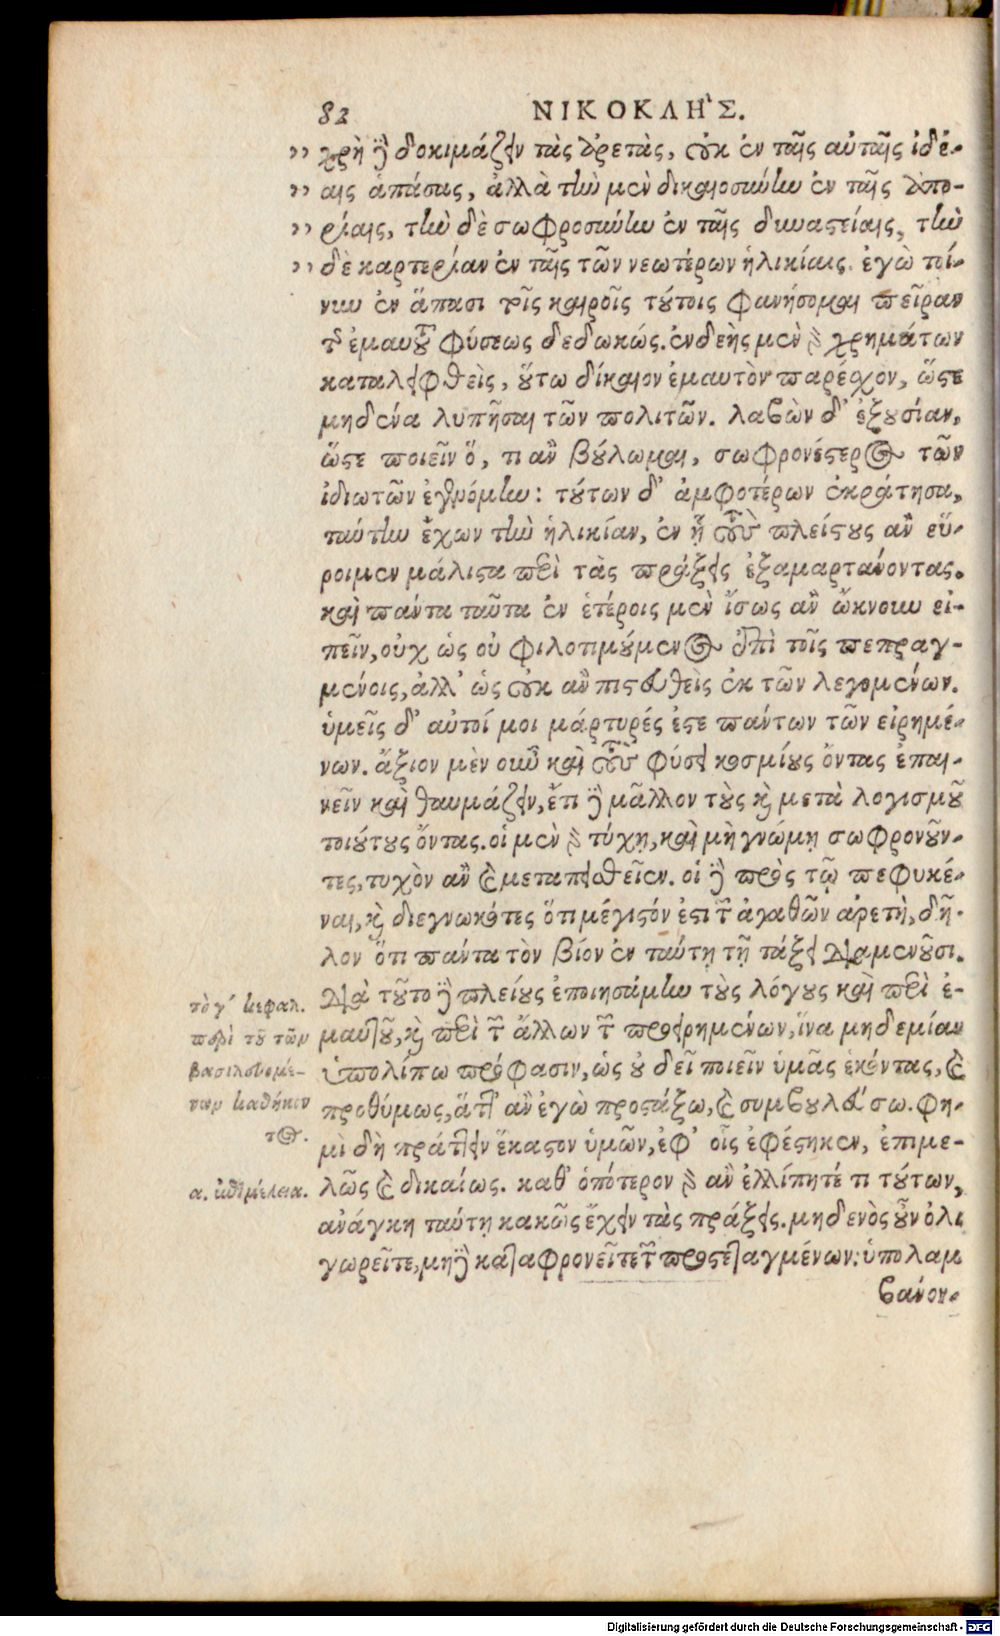 82 ΝΙΚΟΚΛΗ'Σ.
,, χρὴ δὲ δοκιμάζειν τὰς ἀρετὰς, οὐκ ἐν ταῖς αὐταῖς ἰδέ-
,, αις ἁπάσας, ἀλλὰ τὴν μὲν δικαιοσύνην ἐν ταῖς ἀπο-
,, ρίαις, τὴν δὲ σωφροσύνην ἐν ταῖς δυναστείαις, τὴν
,, δὲ καρτερίαν ἐν ταῖς τῶν νεωτέρων ἡλικίαις. ἐγὼ τοί-
νυν ἐν ἅπασι τοῖς καιροῖς τούτοις φανήσομαι πεῖραν
τῆς ἐμαυτοῦ φύσεως δεδωκώς. ἐνδεὴς μὲν γε χρημάτων
καταλειφθεὶς, οὕτω δίκαιον ἐμαυτὸν παρέσχον, ὥστε
μηδένα λυπῆσαι τῶν πολιτῶν. λαβὼν δ' ἐξουσίαν,
ὥστε ποιεῖν ὅ, τι ἂν βούλωμαι, σωφρονέστερος τῶν
ἰδιωτῶν ἐγενόμην: τούτων δ' ἀμφοτέρων ἐκράτησα,
ταύτην ἔχων τὴν ἡλικίαν, ἐν ᾗ τοὺς πλείστους ἂν εὕ-
ροιμεν μάλιστα περὶ τὰς πράξεις ἐξαμαρτάνοντας.
καὶ πάντα ταῦτα ἐν ἑτέροις μὲν ἴσως ἂν ὤκνουν εἰ-
πεῖν, οὐχ ὡς οὐ φιλοτιμούμενος ἐπὶ τοῖς πεπραγ-
μένοις, ἀλλ' ὡς οὐκ ἂν πιστευθεὶς ἐκ τῶν λεγομένων.
ὑμεῖς δ' αὐτοί μοι μάρτυρές ἐστε πάντων τῶν εἰρημέ-
νων. ἄξιον μὲν οὖν καὶ τοὺς φύσει κοσμίους ὄντας ἐπαι-
νεῖν καὶ θαυμάζειν, ἔτι δὲ μᾶλλον τοὺς καὶ μετὰ λογισμοῦ
τοιούτους ὄντας. οἱ μὲν γε τύχῃ, καὶ μὴ γνώμῃ σωφρονοῦν-
τες, τυχὸν ἂν καὶ μεταπεισθεῖεν. οἱ δὲ πρὸς τῷ πεφυκέ-
ναι, καὶ διεγνωκότες ὅτι μέγιστόν ἐστι τῶν ἀγαθῶν ἀρετὴ, δῆ-
λον ὅτι πάντα τὸν βίον ἐν ταύτῃ τῇ τάξει διαμενοῦσι.
διὰ τοῦτο δὲ πλείους ἐποιησάμην τοὺς λόγους καὶ περὶ ἐ-
μαυτοῦ, καὶ περὶ τῶν ἄλλων τῶν προειρημένων, ἵνα μηδεμίαν
ὑπολίπω πρόφασιν, ὡς οὐ δεῖ ποιεῖν ὑμᾶς ἑκόντας, καὶ
προθύμως, ἅττ' ἂν ἐγὼ προστάξω, καὶ συμβουλεύσω. φη-
μὶ δὴ πράττειν ἕκαστον ὑμῶν, ἐφ' οἷς ἐφέστηκεν, ἐπιμε-
λῶς καὶ δικαίως. καθ' ὁπότερον γὰρ ἂν ἐλλίπητέ τι τούτων,
ἀνάγκη ταύτῃ κακῶς ἔχειν τὰς πράξεις. μηδενὸς οὖν ὀλι
γωρεῖτε, μηδὲ καταφρονεῖτε τῶν προστεταγμένων: ὑπολαμ
βάνον-
τὸ γ' κεφαλ.
περὶ τοῦ τῶν
βασιλευομέ-
νων καθήκον
τος.
α. ἐπιμέλεια.
Digitalisierung gefördert durch die Deutsche Forschungsgemeinschaft - DFG